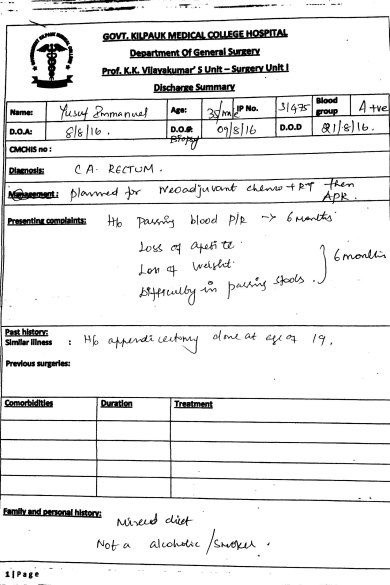 GOVT. KILPAUK MEDICAL COLLEGE HOSPITAL
Department Of General Surgery
Prof. K.K. Vijayakumar' S Unit – Surgery Unit I
Discharge Summary
Name: Yusuf Emmanuel Age: 35/m/c IP No. 31475 Blood group A +ve
D.O.A: 8/8/16. D.O.#: Biopsy 09/8/16 D.O.D 21/8/16.
CMCHIS no :
Diagnosis: CA. RECTUM.
Management: planned for Neoadjuvant chemo + RT then
APR.
Presenting complaints: H/o passing blood P/R → 6 months
Loss of apetite.
Loss of weight.
Difficulty in passing stools. } 6 months
Past history:
Similar illness : H/o appendicectomy done at age of 19.
Previous surgeries:
Comorbidities Duration Treatment
Family and personal history: Mixed diet
Not a alcoholic / smoker.
1 | Page